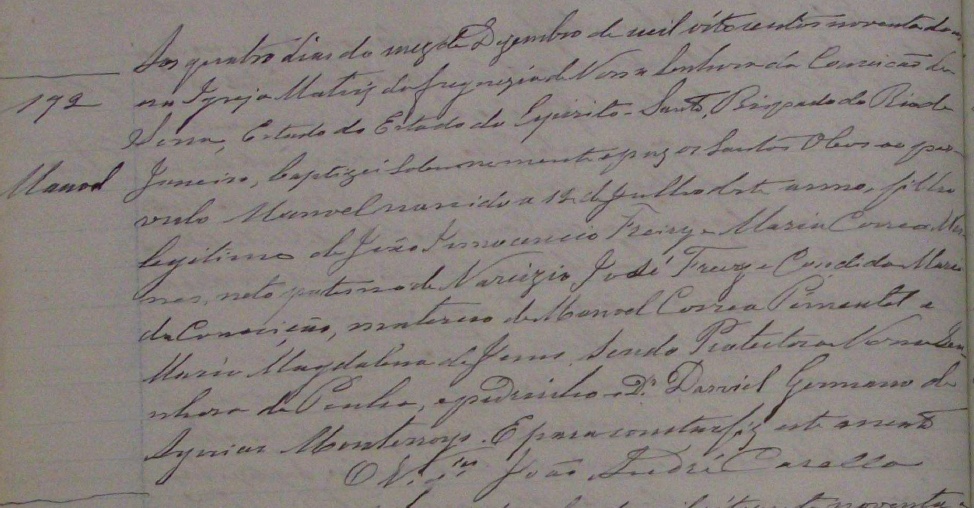 Aos quatro dias do mez de Dezembro de mil oitocentos noventa
na Igreja Matriz da freguezia de Nossa Senhora da Conceição da
192
Serra, Estado do Estado do Espirito-Santo, Bispado do Rio de
Manoel
Janeiro, baptizei solemnemente e puz os Santos Oleos ao par-
vulo Manoel nascido a 12 de Julho deste anno, filho
legitimo de João Innocencio Freire e Maria Correa
neto paterno de Narcizio José Freire e Candida Maria
da Conceição, materno de Manoel Correa Pimentel e
Maria Magdalena de Jesus. Sendo Protectora Nossa Sen-
nhora da Penha, e padrinho o Dr. Daniel Germano de
Aguiar Montarroyo. E para constar fiz este assento
O Vig.ro João André Casella
noventa